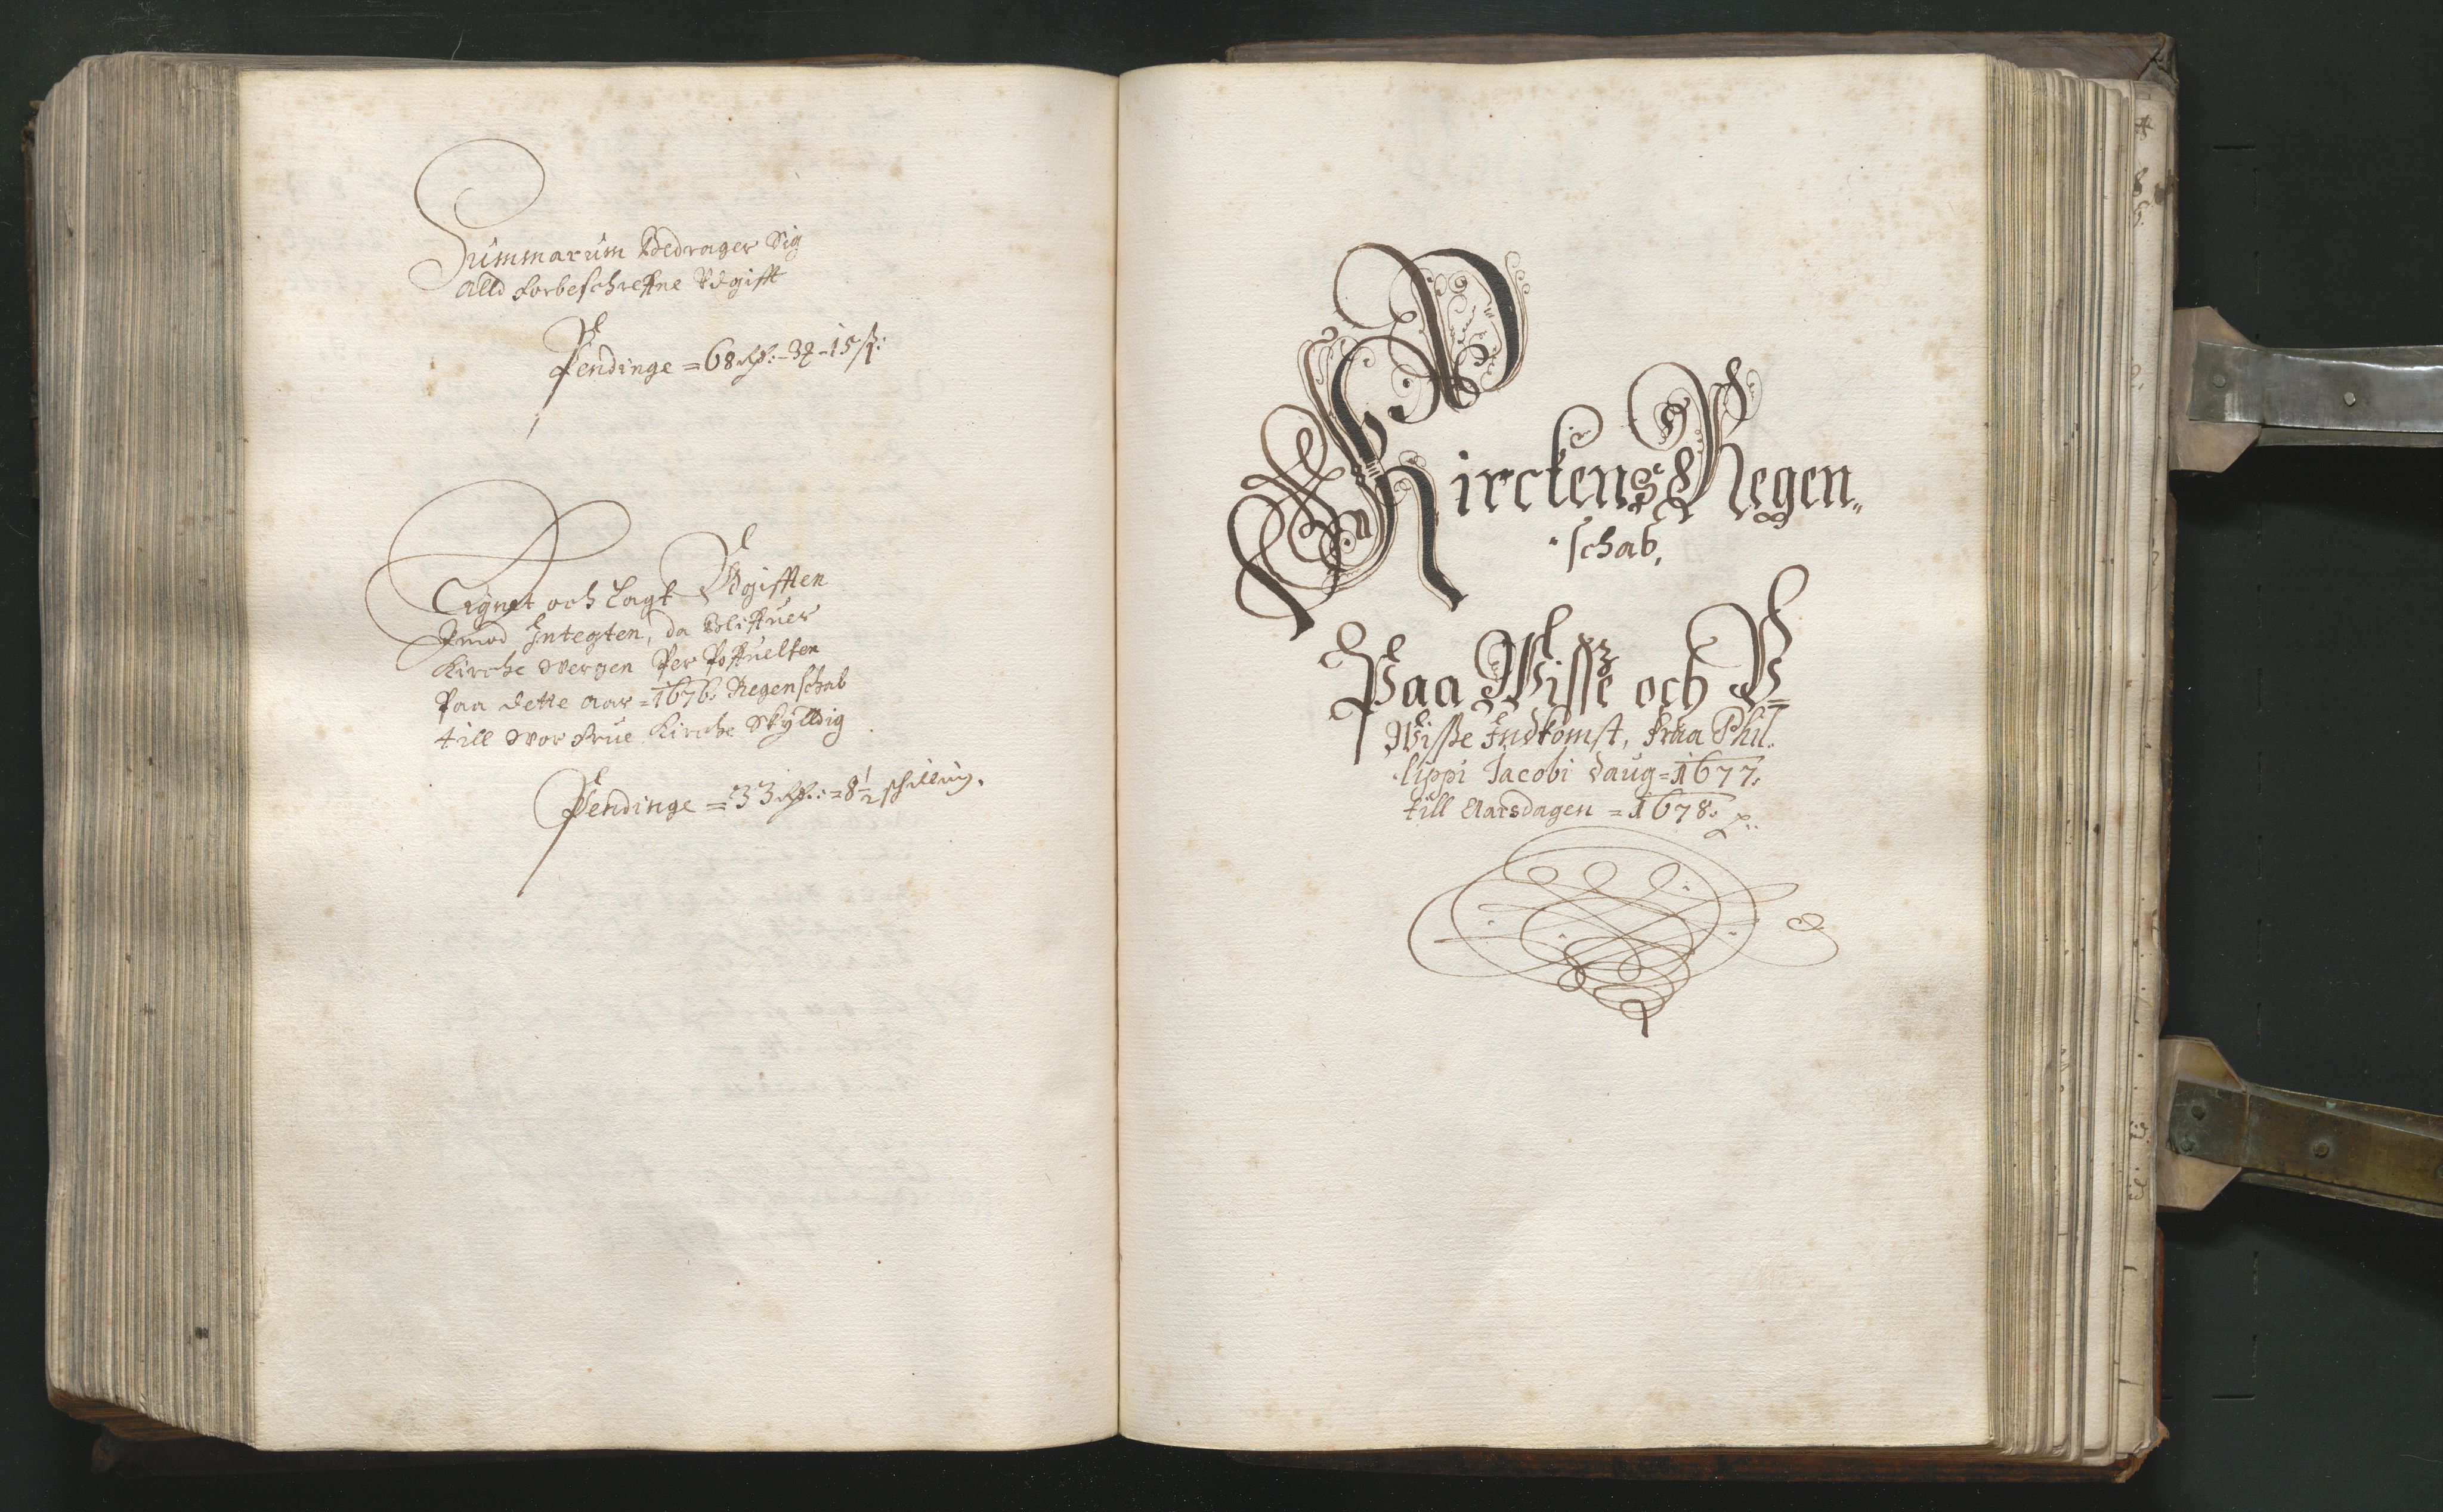 Summarum Bedrager Sig
alld forbeschreffne Vdgifft
Pendinge = 68 Rdr: - 3 ꝣ - 15 ß:
Eignet och Lagt Vdgifften
Imod Integten, da bliffuer
Kirche wergen Per Poffuelsen
Paa dette Aar = 1676: Regenschab
till Wor frue Kirche Skylldig
Pendinge = 33 Rdr: = 8 1/2 schilling.
Kirckens Regen„
schab,
Paa Wisse och V=
Wisse Indkomst, fraa Phil„
lippi Jacobi daug = 1677:
till Aarsdagen = 1678: